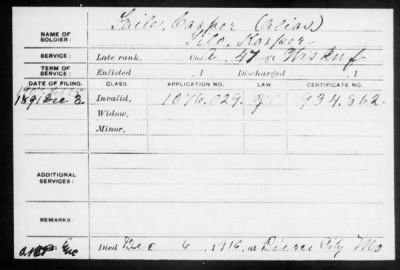 Casper (alias)
NAME OF SOLDIER: Kasper
SERVICE: Late rank, Co. 47 Wis Inf
TERM OF SERVICE: Enlisted , 1 Discharged , 1
DATE OF FILING. CLASS. APPLICATION NO. LAW CERTIFICATE NO.
1891 Dec 3 Invalid, 1076.029. 934.862.
Widow,
Minor,
ADDITIONAL SERVICES:
REMARKS:
Died Dec 6, 1916, at Pierce City Mo